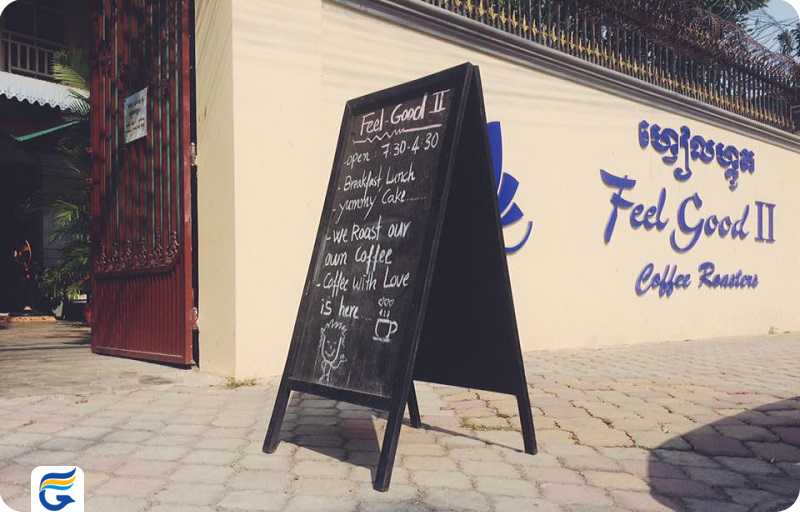 Feel-Good II
open: 7:30-4:30
- Breakfast Lunch
- yummy Cake......
- We Roast our
own Coffee
- Coffee with Love
is here....
ហ្វៀលហ្គូត
Feel Good II
Coffee Roasters